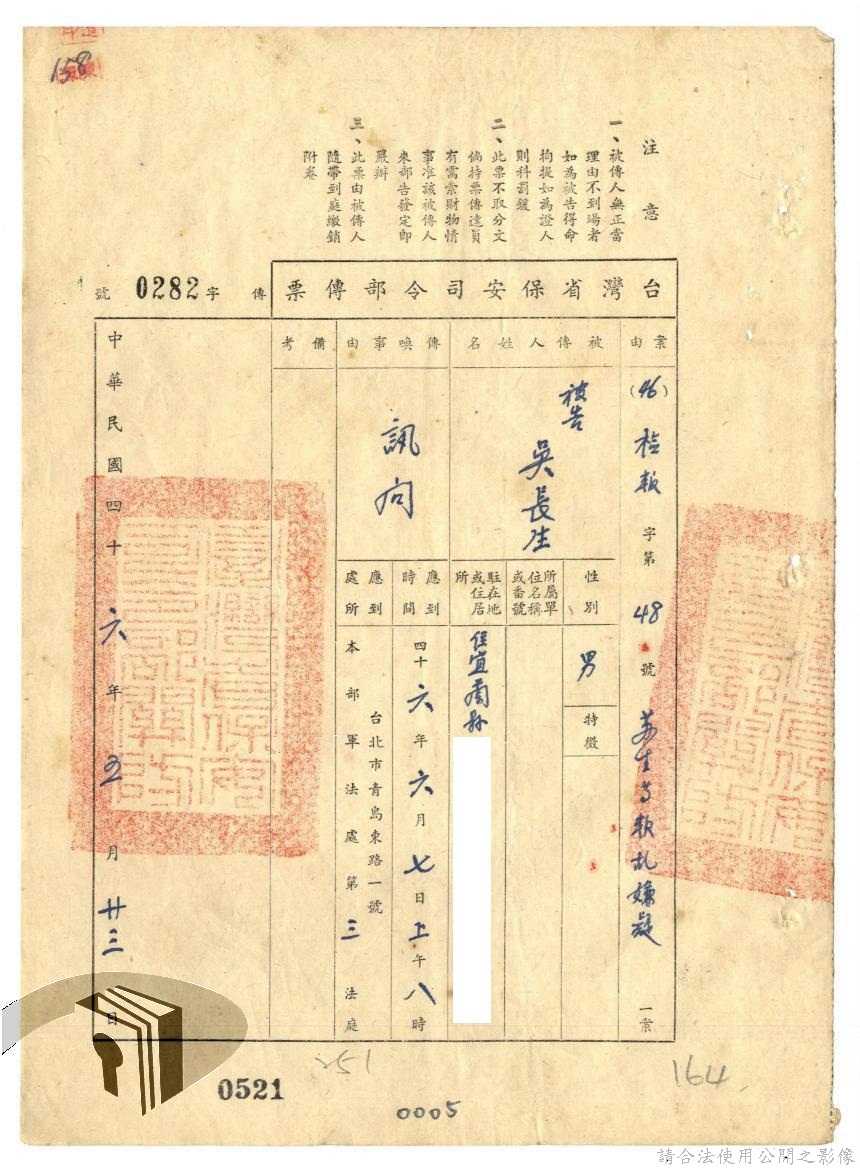 158
注意
一、被傳人無正當
理由不到場者
如為被告得命
拘提如為證人
則科罰鍰
二、此票不取分文
倘持票傳達員
有需索財物情
事准該被傳人
來部告發定即
嚴辦
三、此票由被傳人
隨帶到庭繳銷
附卷
台灣省保安司令部傳票
傳字0282號
案由
(46)
字第48號
嫌疑
一案
被傳人姓名
被告
吳長生
性別
男
特徵
所屬單
位名稱
或番號
駐在地
或住居
所
傳喚事由
訊問
應到
時間
四十六年六月七日上午八時
應到
處所
台北市青島東路一號
本部軍法處第三法庭
備考
中華民國四十六年五月廿三日
0521
152
0005
164
請合法使用公開之影像